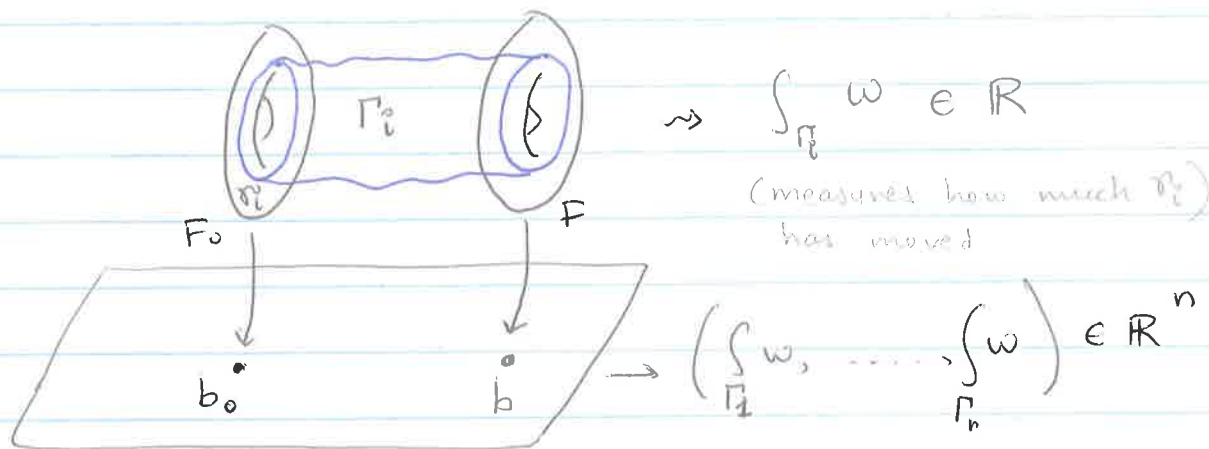 Γᵢ ⇝ ∫_Γᵢ ω ∈ ℝ
γᵢ (measures how much γᵢ)
has moved
F₀ F
b₀ b → (∫_Γ₁ ω, ....., ∫_Γₙ ω) ∈ ℝⁿ